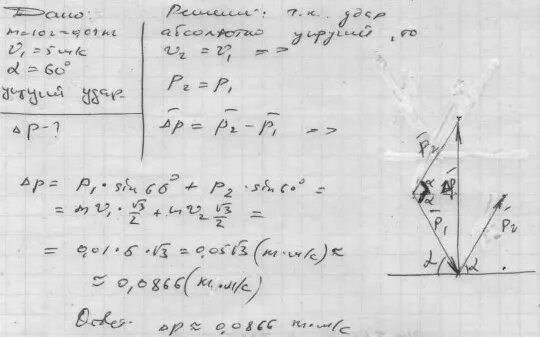 Дано:
m=10г=0,01кг
v₁=5м/с
α=60°
упругий удар.
Δp-?
Решение: т.к. удар
абсолютно упругий, то
v₂=v₁ =>
P₂=P₁
Δp̄=p̄₂-p̄₁ =>
Δp= P₁·sin60°+P₂·sin60°=
=mv₁·√3/2+mv₂√3/2=
=0,01·5·√3=0,05√3(кг·м/с)≈
≈0,0866(кг·м/с)
Ответ: Δp≈0,0866 кг·м/с
p̄₂
α
α
Δp̄
p̄₁
p̄₂
α
α